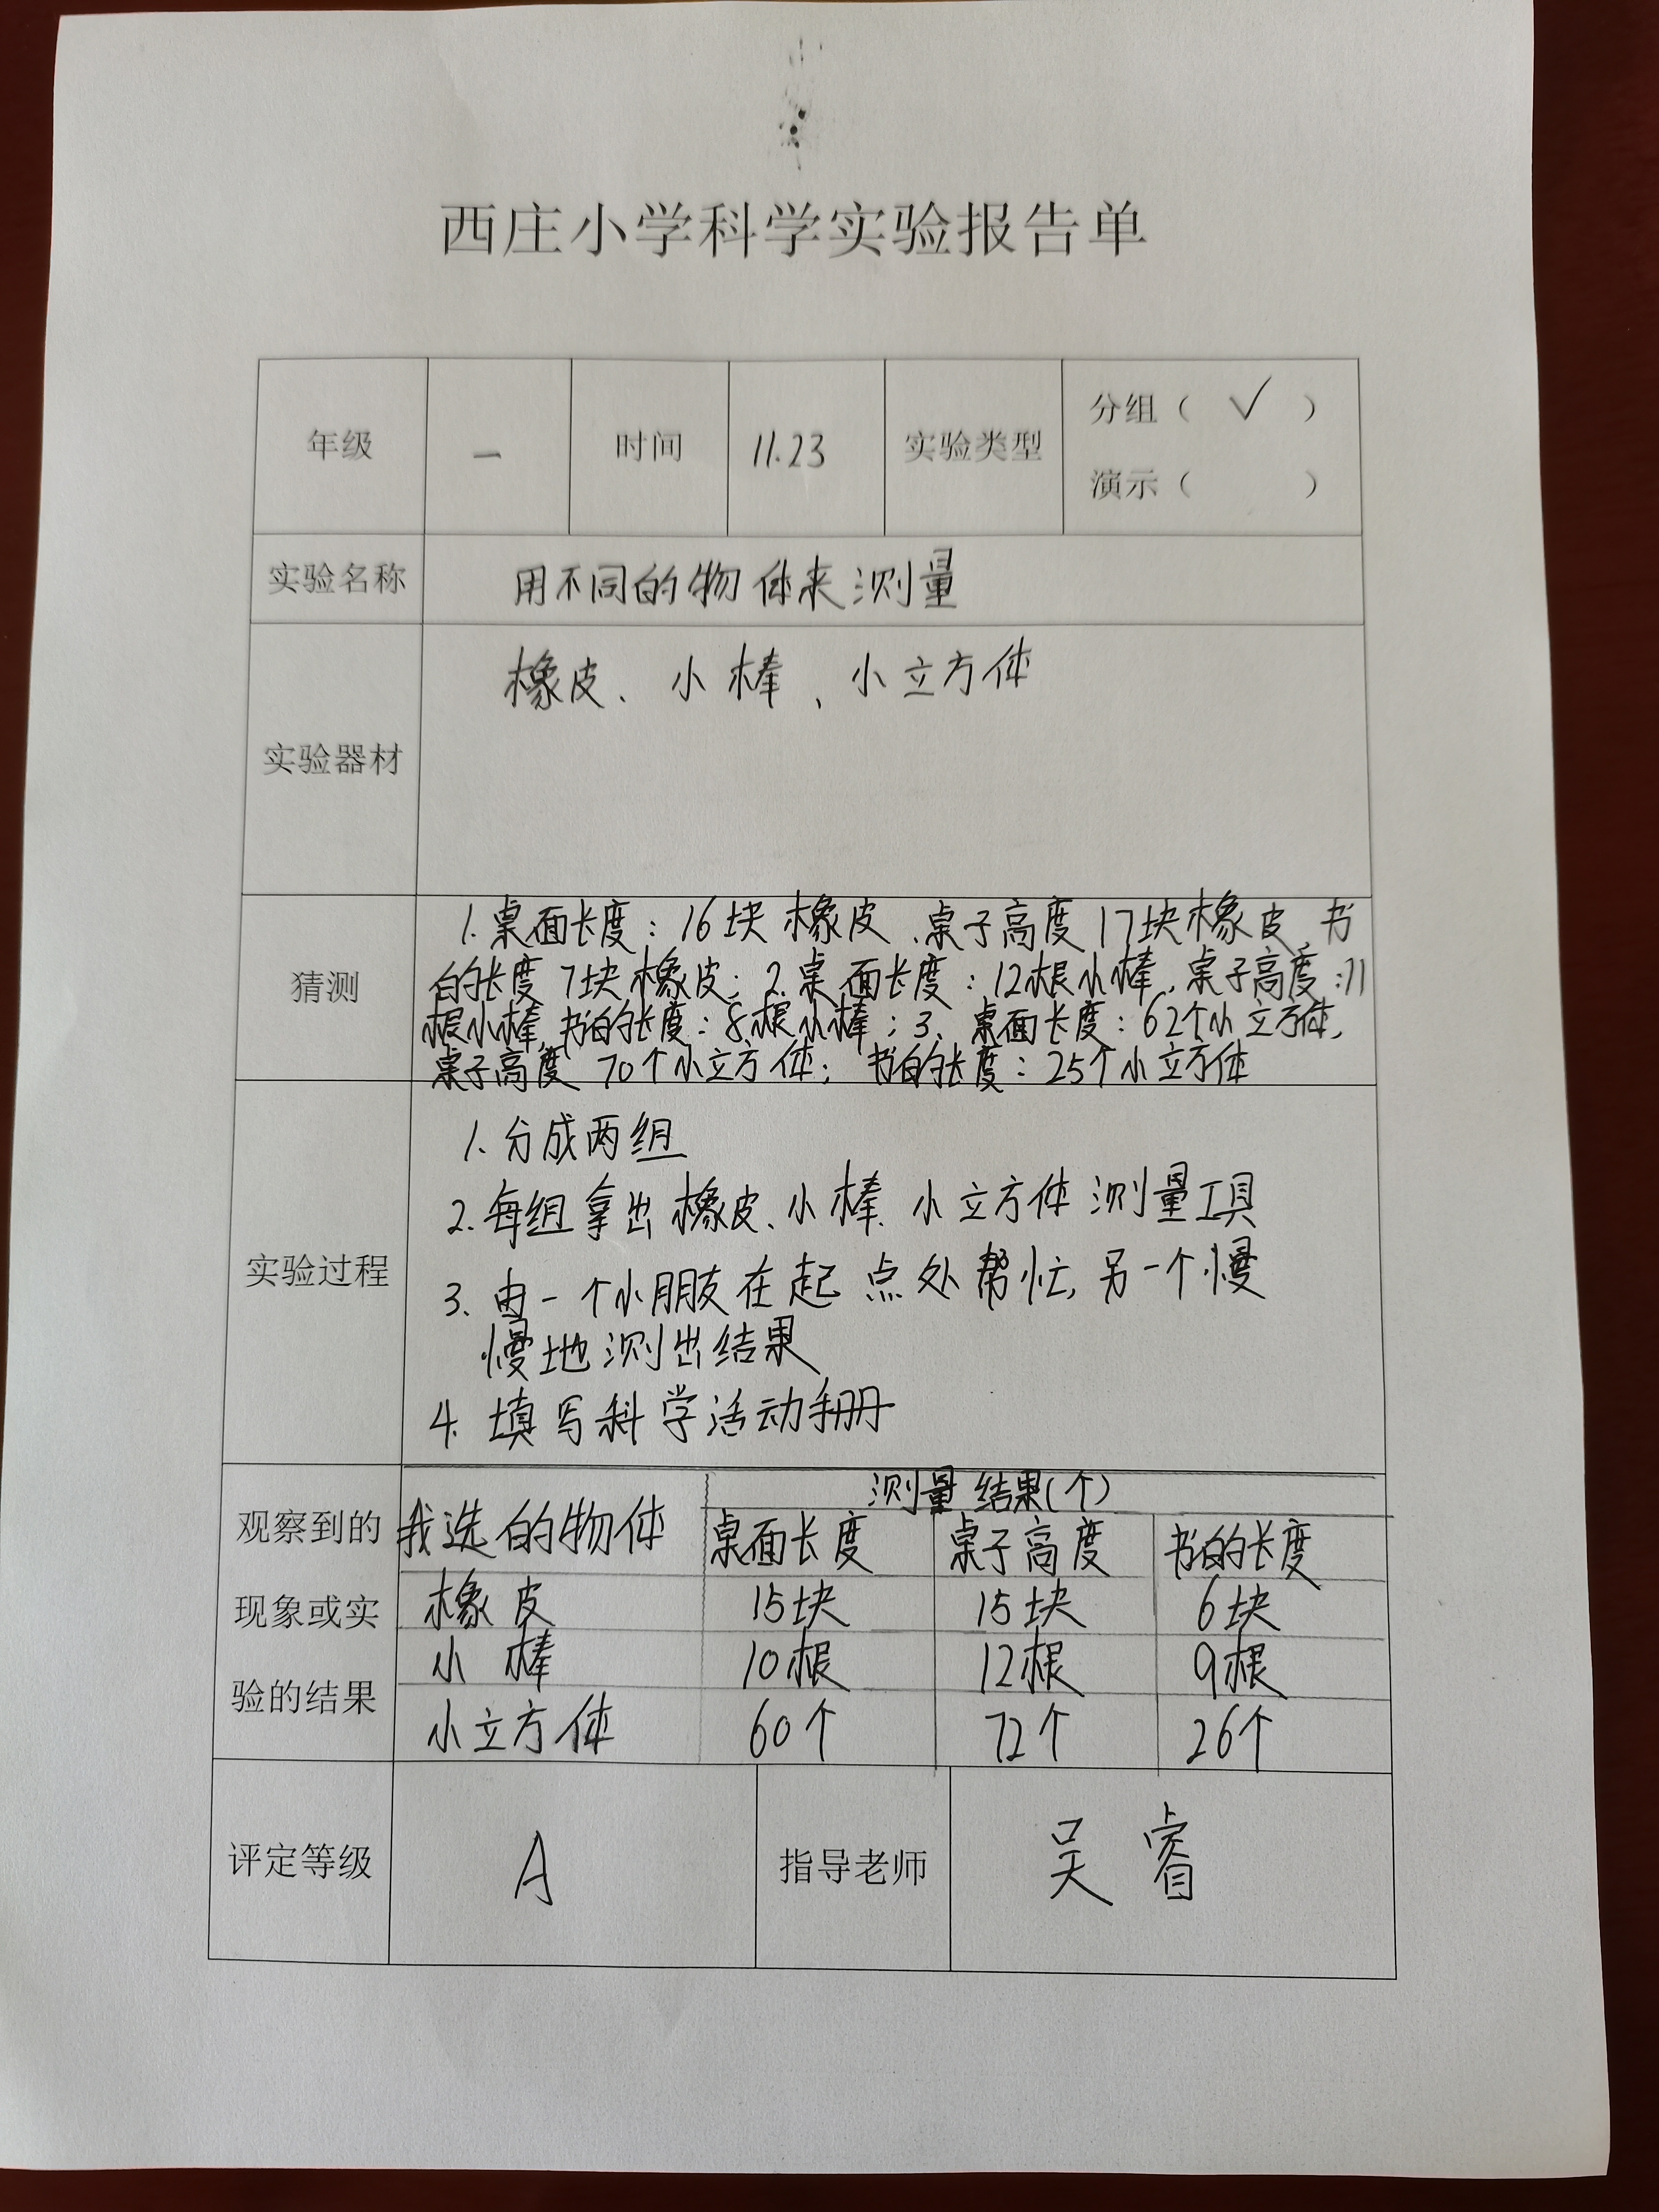 西庄小学科学实验报告单
年级 一 时间 11.23 实验类型 分组（ √ ）
演示（ ）
实验名称 用不同的物体来测量
实验器材 橡皮、小棒、小立方体
猜测
1.桌面长度：16块橡皮、桌子高度17块橡皮、书
的长度7块橡皮；2.桌面长度：12根小棒，桌子高度：11
根小棒，书的长度：8根小棒；3、桌面长度：62个小立方体，
桌子高度 70个小立方体； 书的长度：25个小立方体
实验过程
1.分成两组
2.每组拿出橡皮、小棒、小立方体测量工具
3.由一个小朋友在起点处帮忙，另一个慢
慢地测出结果
4.填写科学活动手册
观察到的
现象或实
验的结果
测量结果(个)
我选的物体 桌面长度 桌子高度 书的长度
橡皮 15块 15块 6块
小棒 10根 12根 9根
小立方体 60个 72个 26个
评定等级 A 指导老师 吴睿